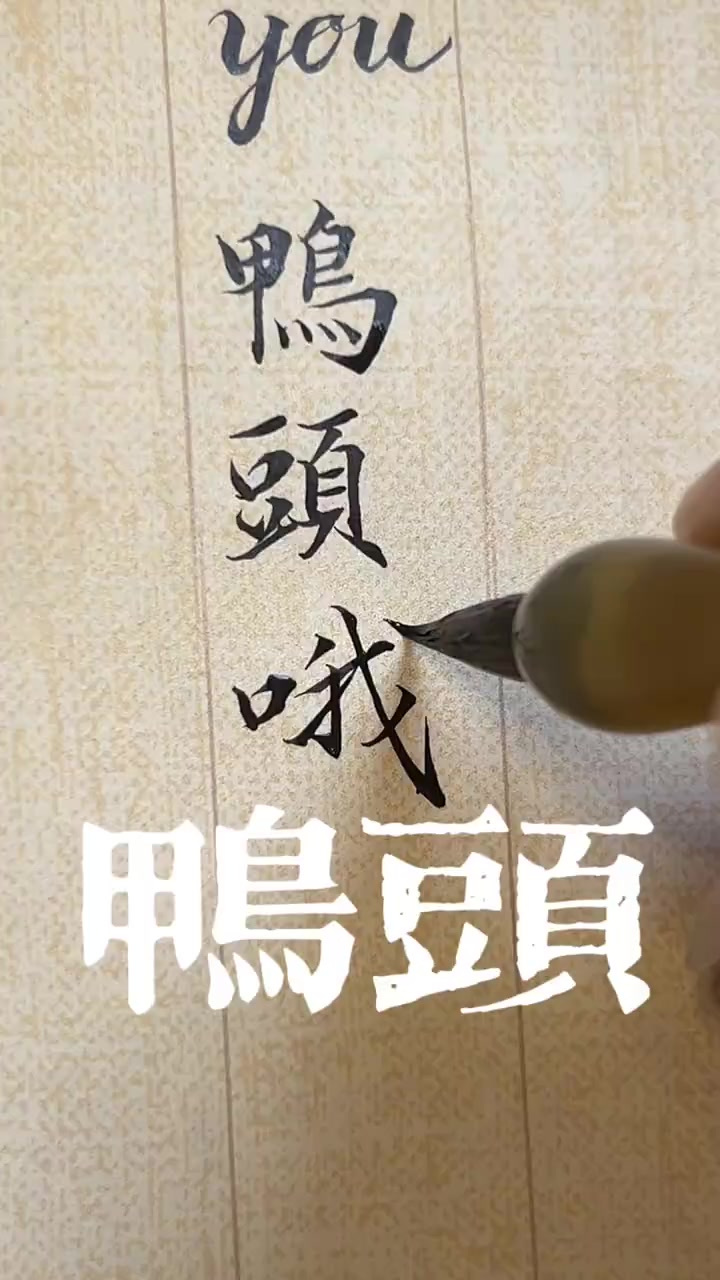 you
鴨
頭
哦
鴨頭